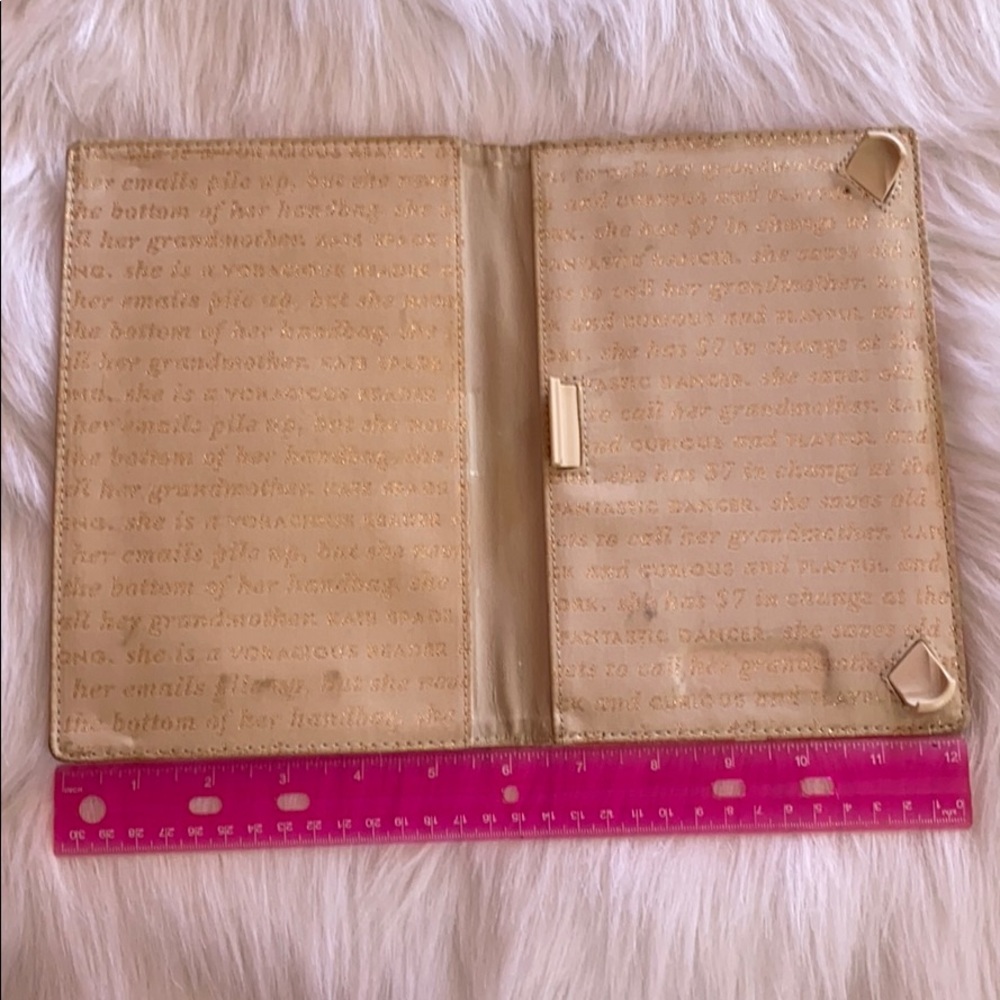 VORACIOUS READER
her emails pile up, but she
he bottom of her handbag. she
ll her grandmother. KATE SPADE
NG. she is a VORACIOUS READER
her emails pile up, but she
the bottom of her handbag. she
ll her grandmother. KATE SPADE
NG. she is a VORACIOUS READER
her emails pile up, but she
the bottom of her handbag. she
ll her grandmother. KATE SPADE
ONG. she is a VORACIOUS READER
her emails pile up, but she
the bottom of her handbag. she
ll her grandmother. KATE SPADE
ONG. she is a VORACIOUS READER
her emails pile up, but she
the bottom of her handbag. she
to call her grandmother
and CURIOUS and PLAYFUL
ORK. she has $7 in change at the
FANTASTIC DANCER. she saves old
ets to call her grandmother.
K and CURIOUS and PLAYFUL and
ORK. she has $7 in change at the
TASTIC DANCER. she saves old
to call her grandmother. KAT
and CURIOUS and PLAYFUL and
ORK. she has $7 in change at the
FANTASTIC DANCER. she saves old
ets to call her grandmother. KAT
CK and CURIOUS and PLAYFUL and
ORK. she has $7 in change at the
FANTASTIC DANCER. she saves old
ets to call her grandmother
CK and CURIOUS and PLAYFUL
1 2 3 4 5 6 7 8 9 10 11 12
INCH
30 29 28 27 26 25 24 23 22 21 20 19 18 17 16 15 14 13 12 11 10 9 8 7 6 5 4 3 2 1 0